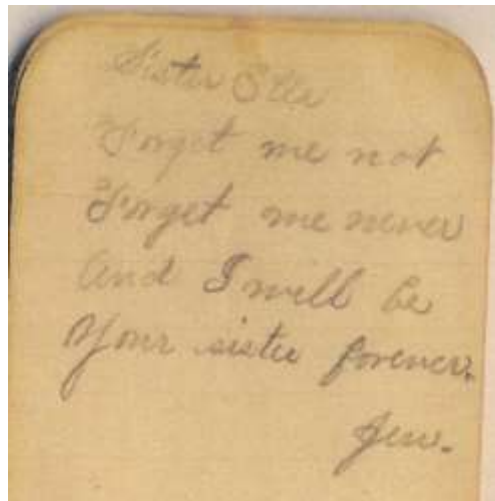 Sister Ella
Forget me not
Forget me never
And I will be
Your sister forever.
Jew.